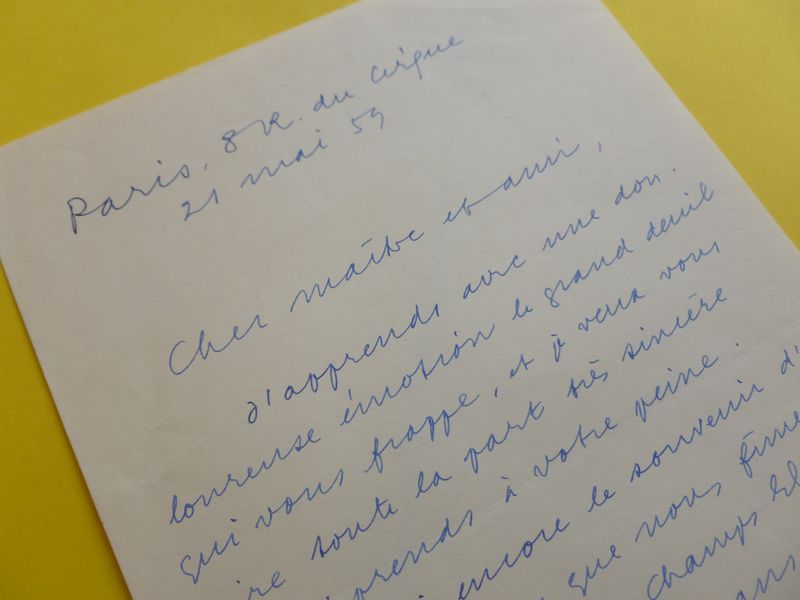 Paris, 8 R. du Cirque
21 mai 59
Cher maître et ami,
J'apprends avec une dou-
loureuse émotion le grand deuil
qui vous frappe, et je veux vous
ire toute la part très sincère
prends à votre peine.
i encore le souvenir d'
que nous fîmes
champs El
ans